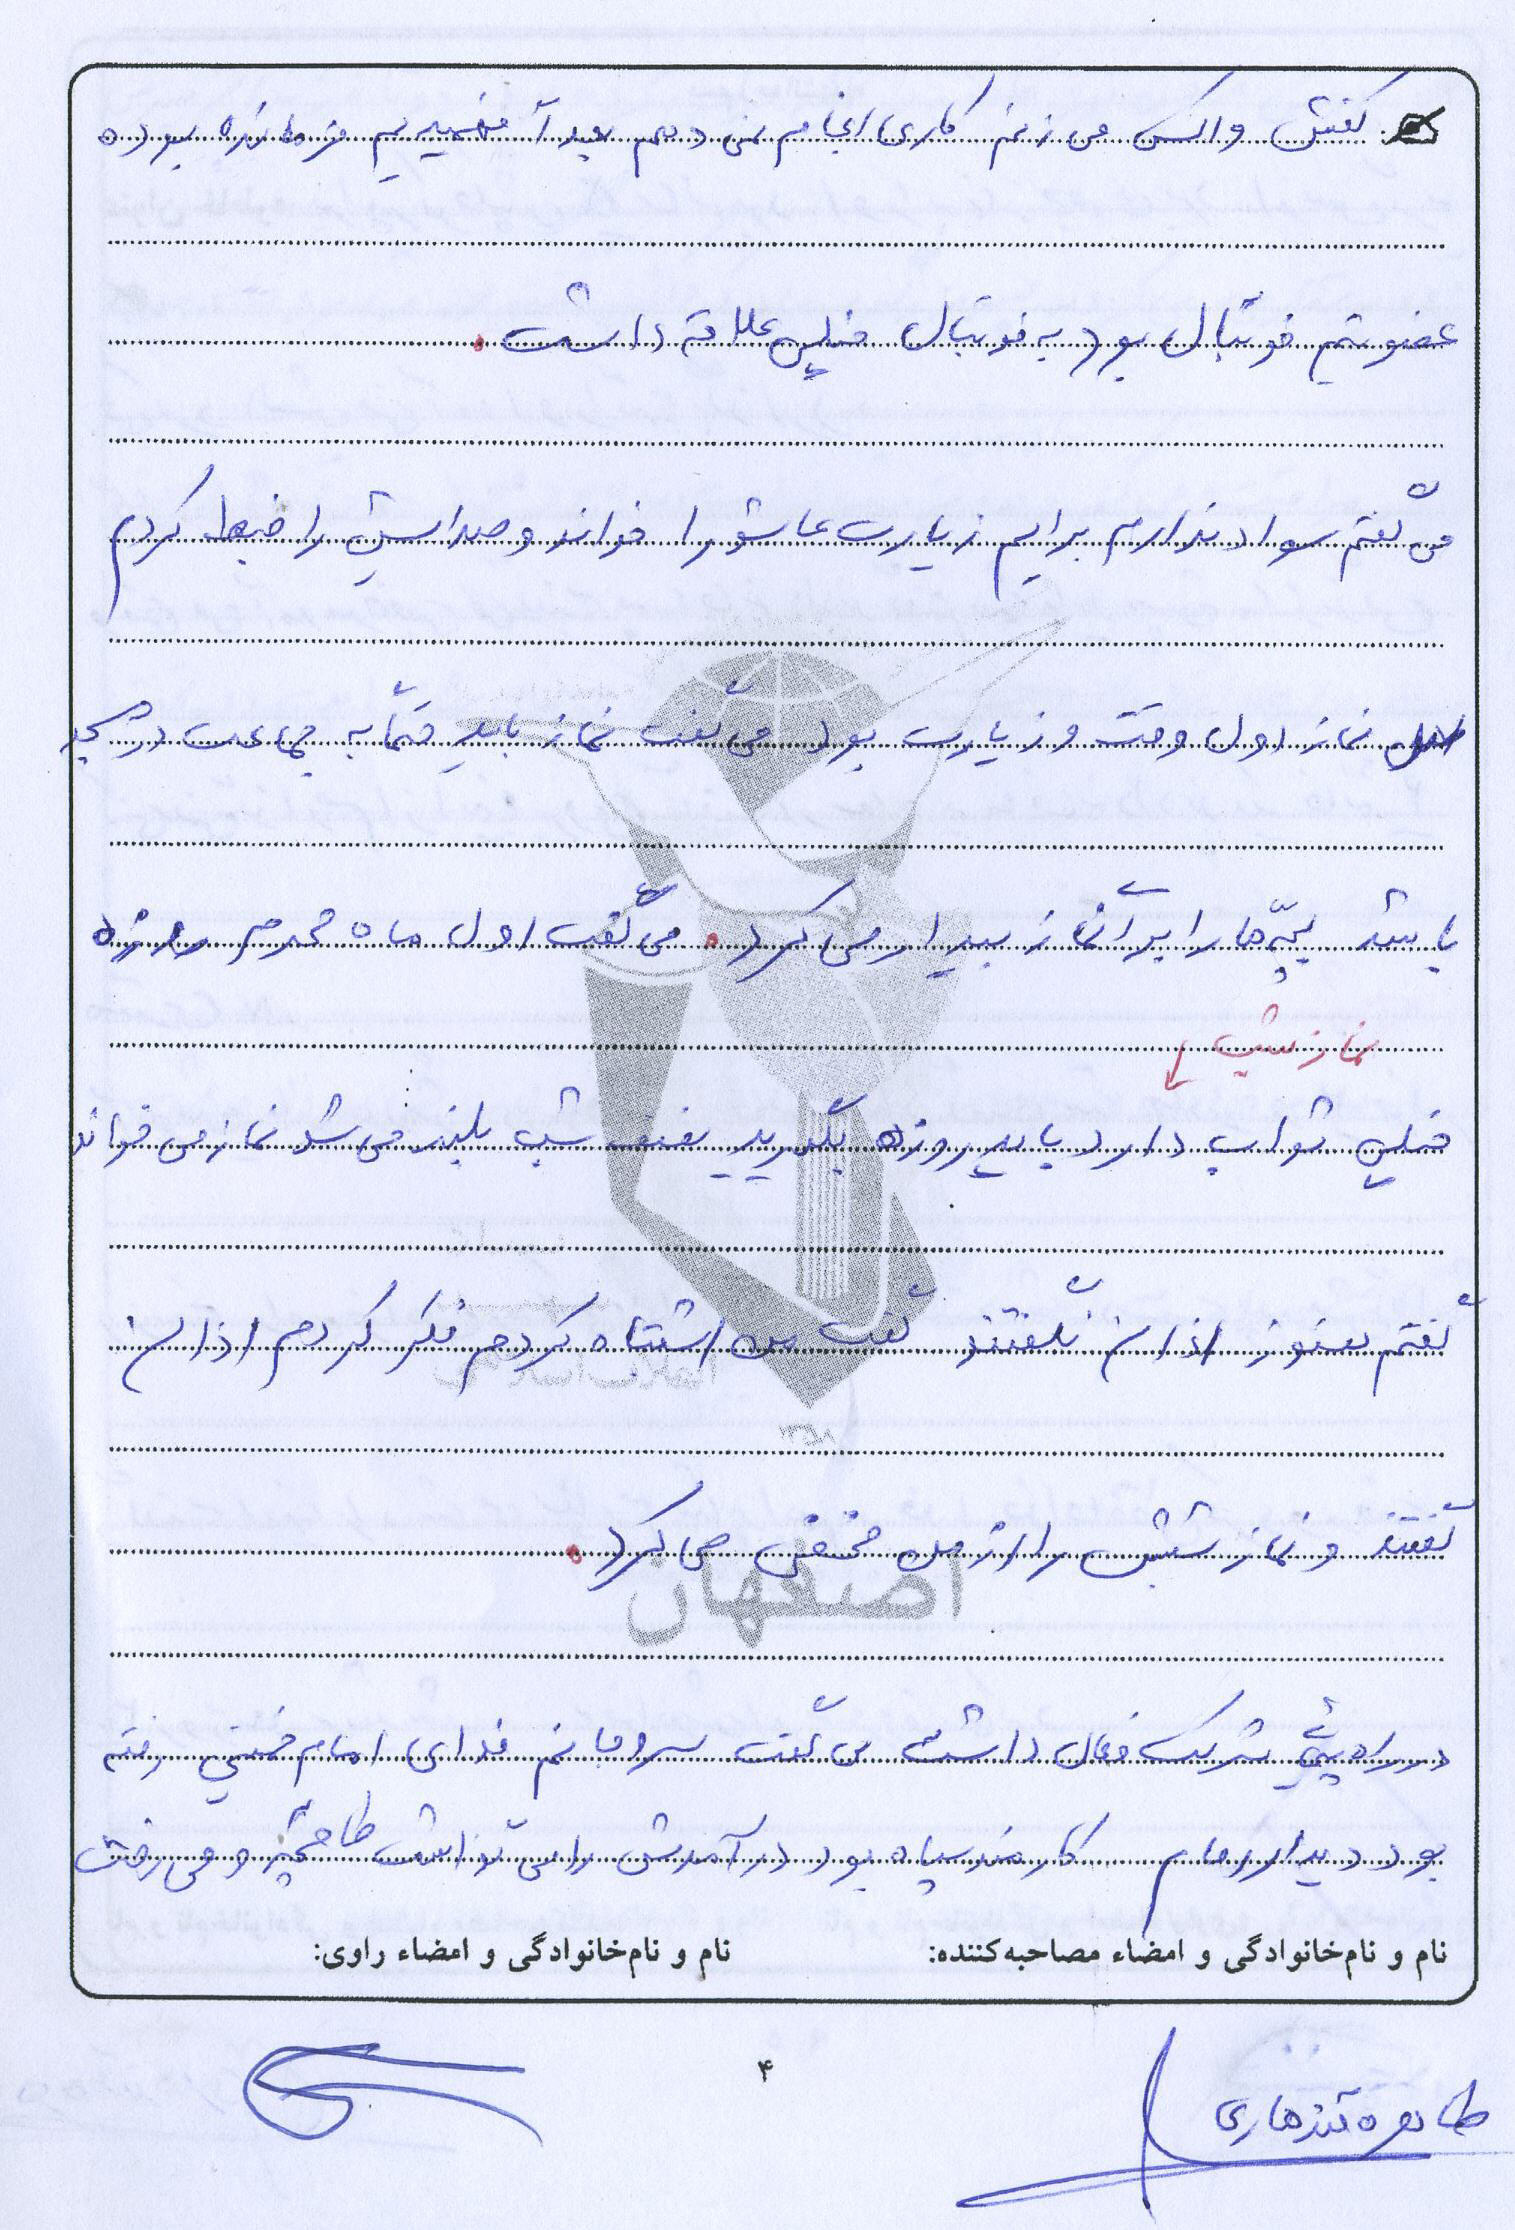 کفش واکس می زنم کاری انجام نمی دهم بعداً فهمیدیم فرمانده بوده
عضو تیم فوتبال بود به فوتبال خیلی علاقه داشت.
می گفتم سواد ندارم برایم زیارت عاشورا خواند و صدایش را ضبط کردم
اهل نماز اول وقت و زیارت بود می گفت نماز باید حتماً به جماعت در مسجد
باشد بچّه ها را برای نماز بیدار می کرد. می گفت اول ماه محرم روزه
نماز شب
خیلی ثواب دارد باید روزه بگیرید نصف شب بلند می شد نماز می خواند
گفتم هنوز اذان نگفتند گفت من اشتباه کردم فکر کردم اذان
گفتند و نماز شبش را از من مخفی می کرد.
در راه پیمایی شرکت فعال داشت می گفت سر و جانم فدای امام خمینی رفته
بود دیدار امام کارمند سپاه بود درآمدش را می گذاشت طاقچه و می رفت
نام و نام‌خانوادگی و امضاء مصاحبه‌کننده: نام و نام‌خانوادگی و امضاء راوی:
۴
طاهره قندهاری
۱۳۶۸
اصفهان